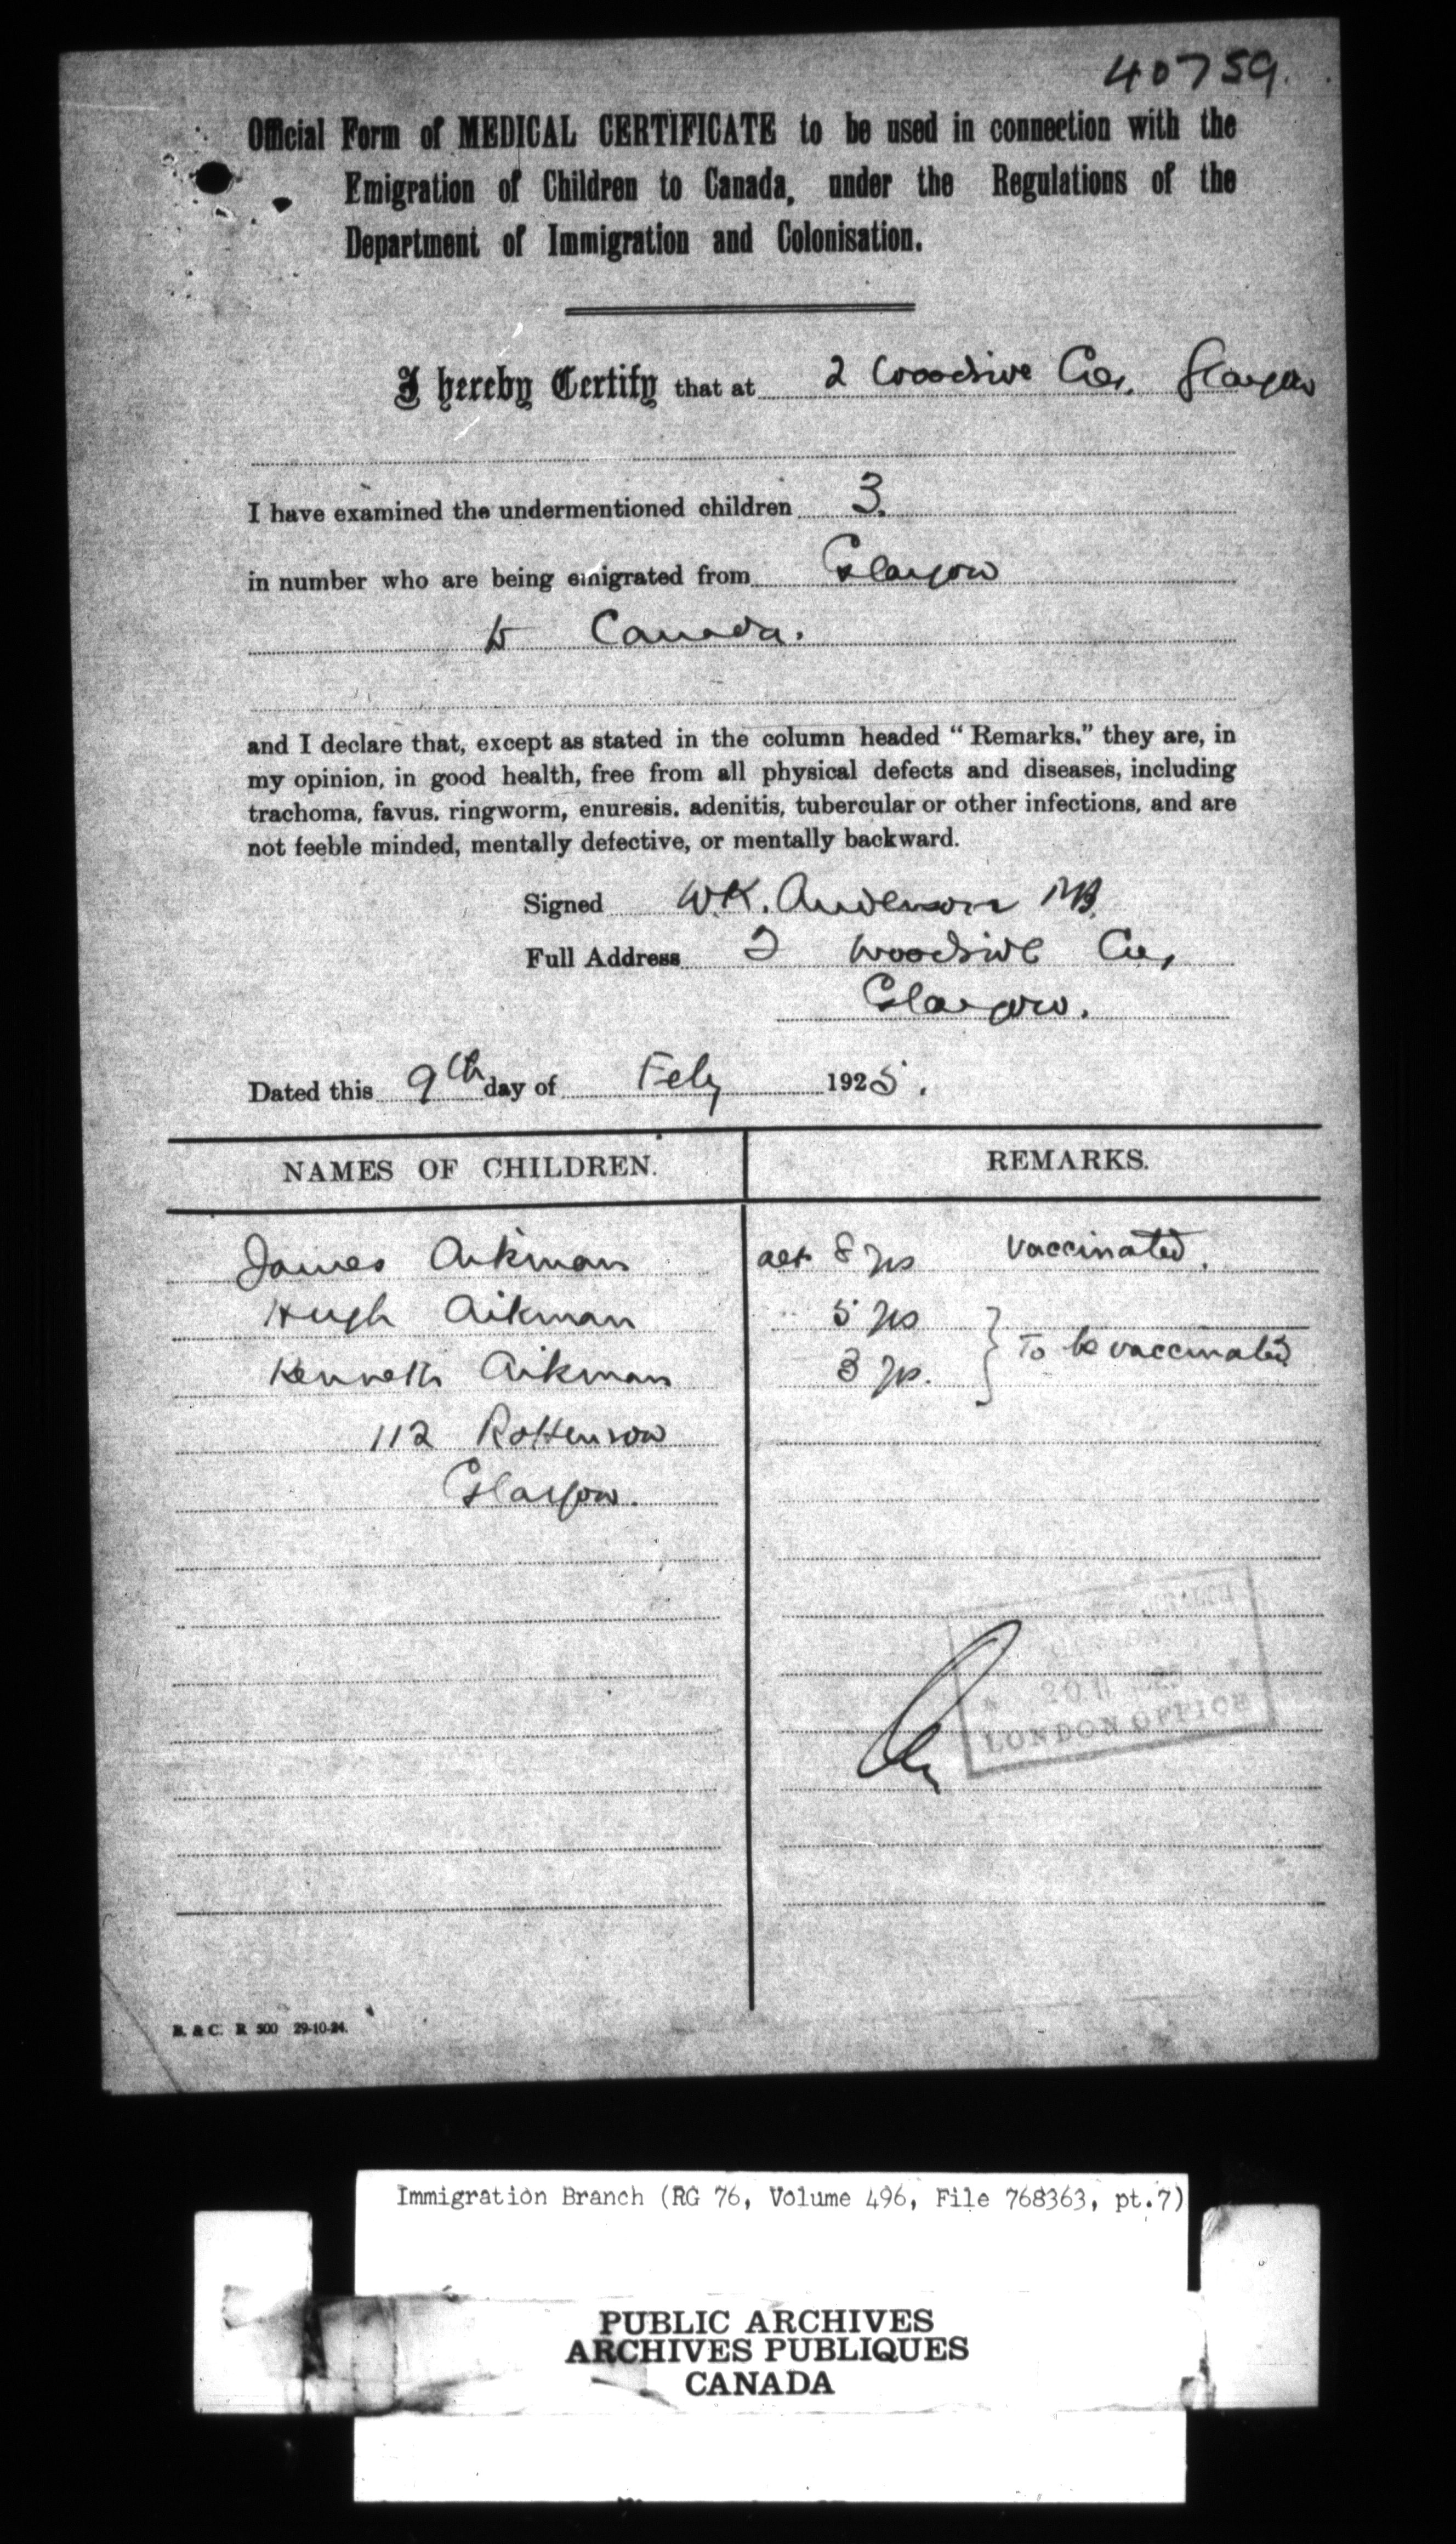 40759.
Official Form of MEDICAL CERTIFICATE to be used in connection with the
Emigration of Children to Canada, under the Regulations of the
Department of Immigration and Colonisation.
I hereby Certify that at 2 Woodside Cres. Glasgow
I have examined the undermentioned children 3.
in number who are being emigrated from Glasgow
to Canada.
and I declare that, except as stated in the column headed “Remarks,” they are, in
my opinion, in good health, free from all physical defects and diseases, including
trachoma, favus, ringworm, enuresis, adenitis, tubercular or other infections, and are
not feeble minded, mentally defective, or mentally backward.
Signed W.K. Anderson MB.
Full Address 2 Woodside Cres,
Glasgow.
Dated this 9th day of Feby 1925.
NAMES OF CHILDREN. REMARKS.
James Aikman aet 8 yrs Vaccinated.
Hugh Aikman 5 yrs
Kenneth Aikman 3 yrs. } To be vaccinated
112 Rottenrow
Glasgow.
LONDON OFFICE
B. & C. R 500 29-10-24.
Immigration Branch (RG 76, Volume 496, File 768363, pt.7)
PUBLIC ARCHIVES
ARCHIVES PUBLIQUES
CANADA